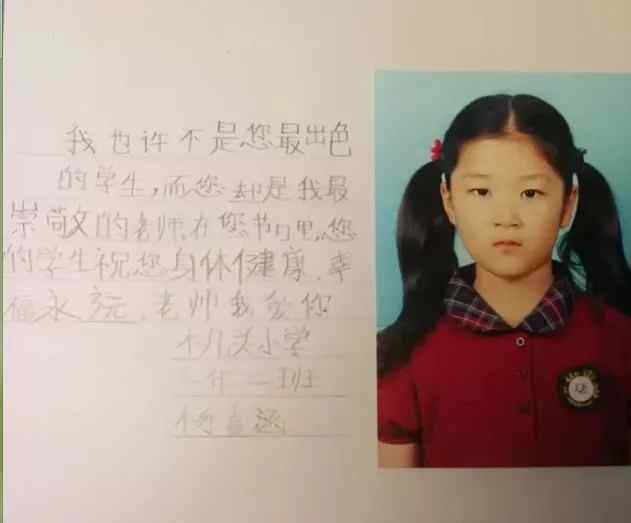 我也许不是您最出色
的学生,而您却是我最
崇敬的老师,在您节日里,您
的学生祝您身体健康.幸
福永远.老师我爱你
小学
班